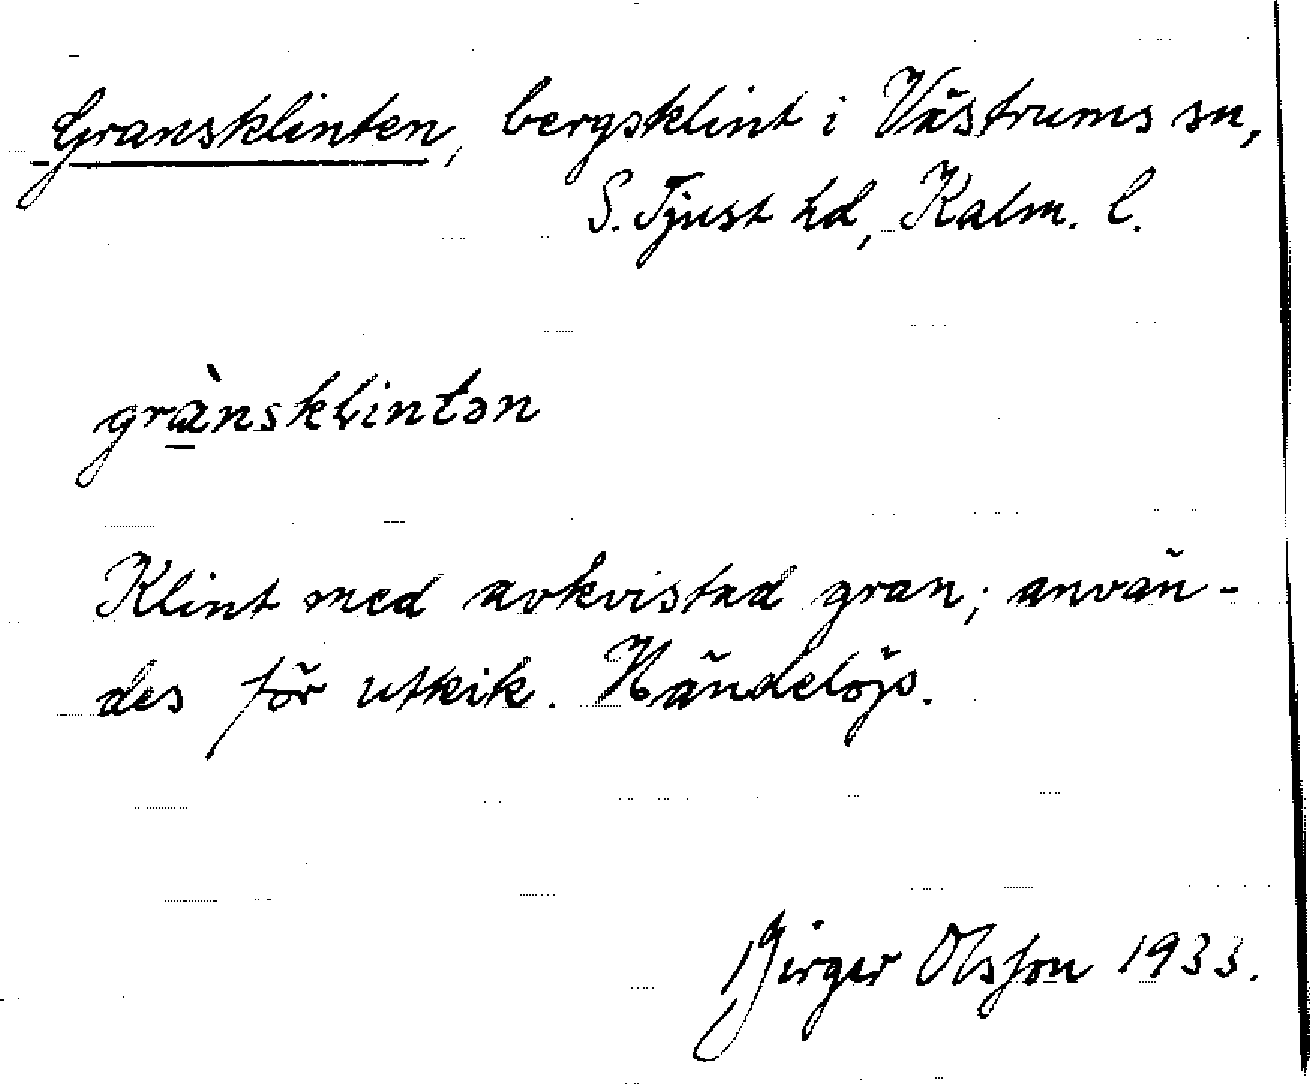 Gransklinten, bergsklint i Västrums sn,
S. Tjust hd, Kalm. l.
grànsklintən
Klint med avkvistad gran; använ-
des för utkik. Händelöps.
Birger Olsson 1933.